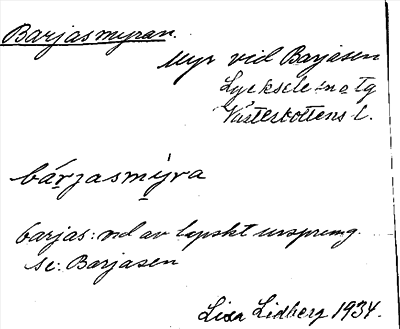 Barjasmyran.
Myr vid Barjasen
Lycksele sn o tg
Västerbottens l.
bárjasmỳra
barjas: nd av lapskt ursprung.
se: Barjasen
Lisa Lidberg 1934.